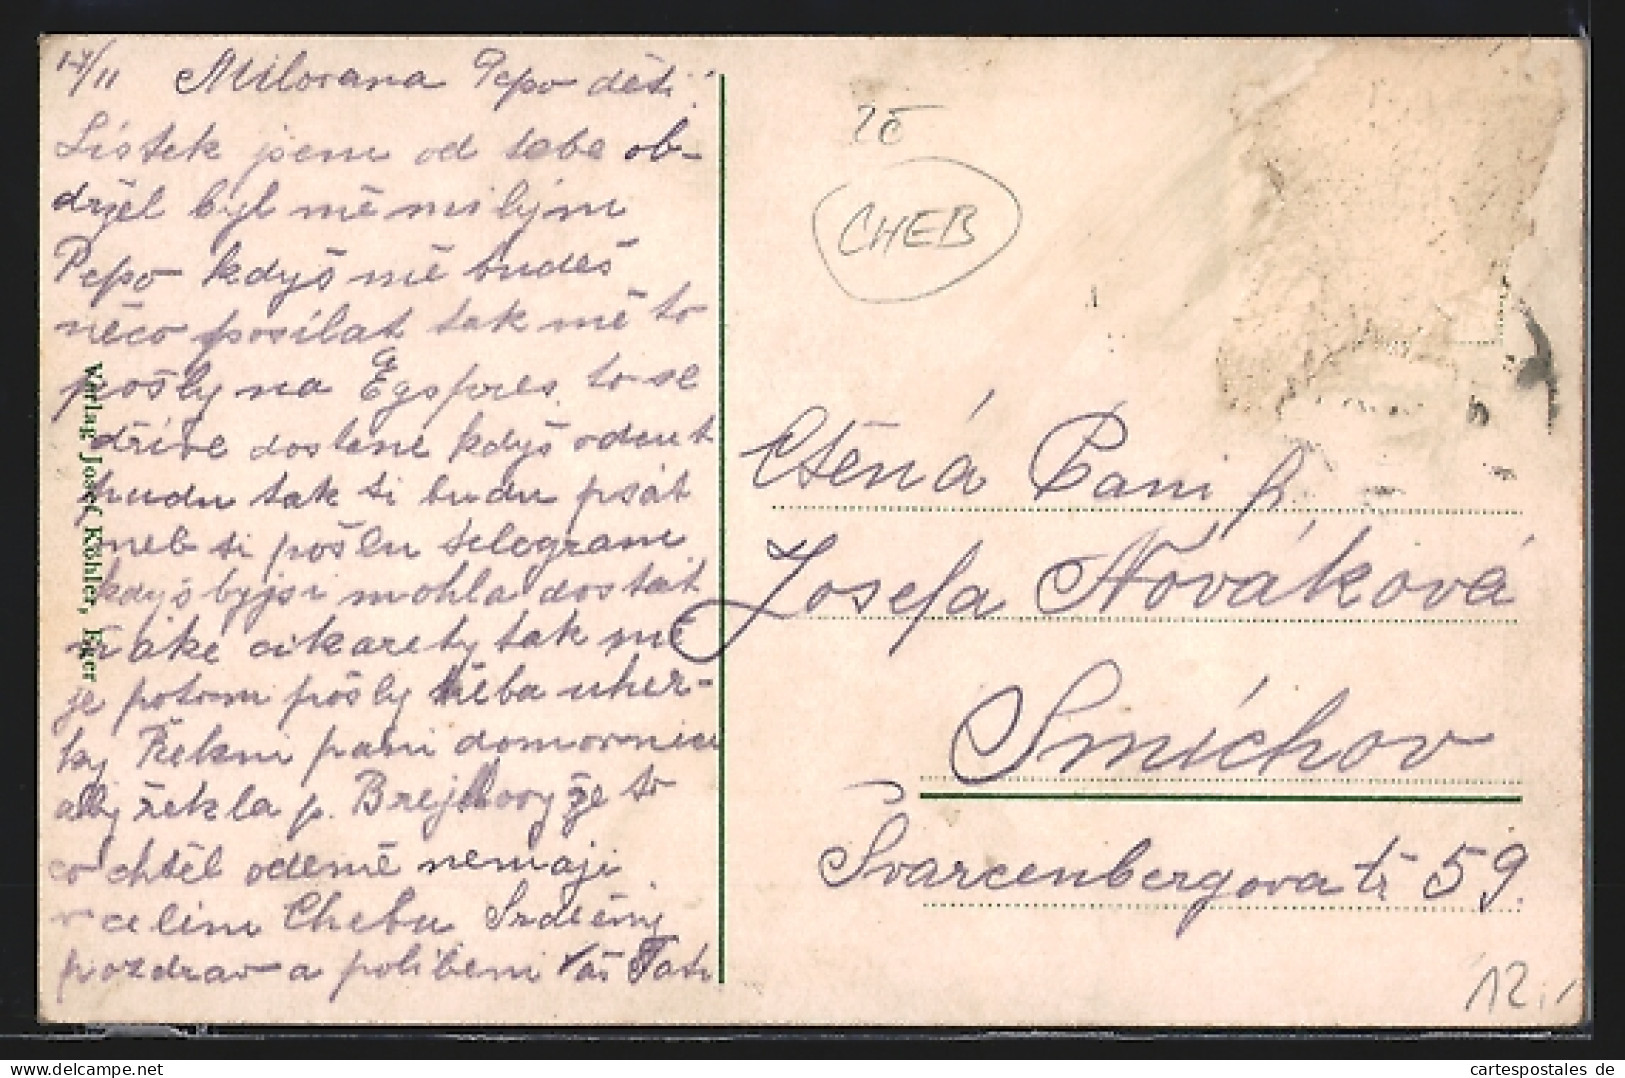 17/11 Milovaná Pepo děti!
Lístek jsem od tebe ob-
držel byl mě milým
Pepo kdyš mě budeš
něco posílat tak mě to
pošly na Egspres to se
dříve dostene kdyš odeut
pudu tak ti budu psát
neb ti pošlu telegram
kdyš byjsi mohla dostat
ňáké cikarety tak mě
je potom pošly třeba uher-
ky Řekni paní domovnici
aby řekla p. Brejhovy že to
co chtěl odemě nemaji
v celim Chebu Srdečný
pozdrav a políbení Váš Tati
Verlag Josef Köhler, Eger
CHEB
Ctěná Paní
Josefa Nováková
Smíchov
Švarcenbergova tř 59.
12.
cartespostales de
www.delcampe.net